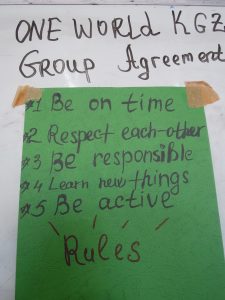 ONE WORLD KGZ
Group Agreement
*1 Be on time
*2 Respect each-other
*3 Be responsible
*4 Learn new things
*5 Be active
Rules